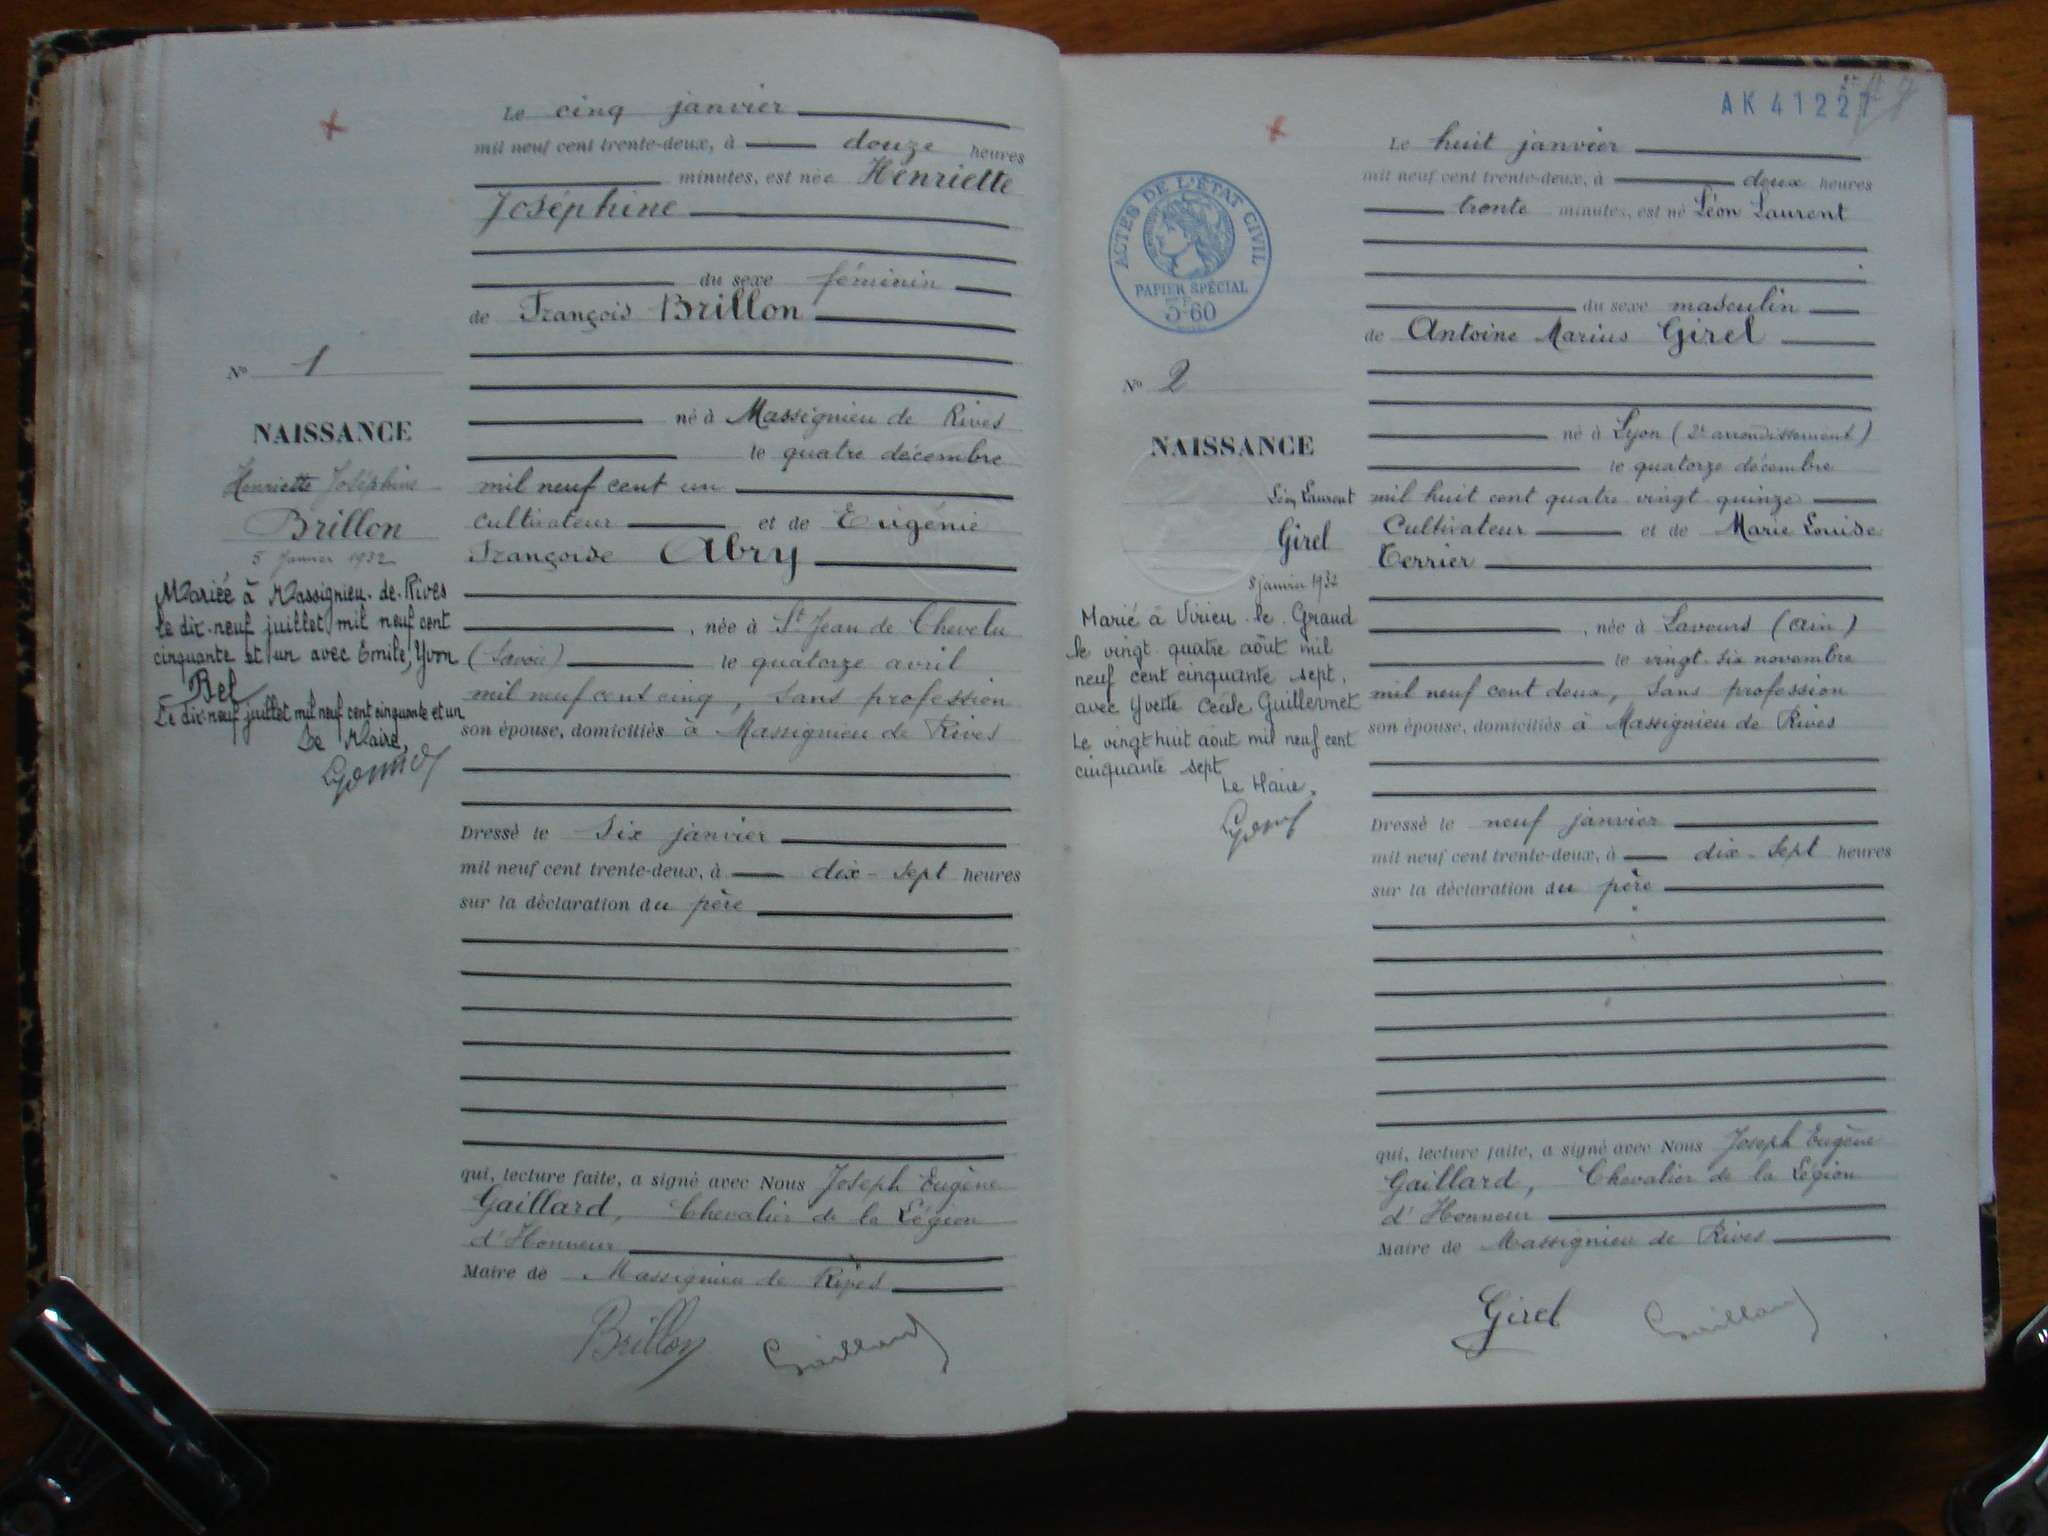 Le cinq janvier
mil neuf cent trente-deux, à douze heures
minutes, est née Henriette
Joséphine
du sexe féminin
de François Brillon
né à Massignieu de Rives
le quatre décembre
mil neuf cent un
cultivateur et de Eugénie
Françoise Abry
, née à St Jean de Chevelu
(Savoie) le quatorze avril
mil neuf cent cinq, sans profession
son épouse, domiciliés à Massignieu de Rives
Dressé le six janvier
mil neuf cent trente-deux, à dix-sept heures
sur la déclaration du père
qui, lecture faite, a signé avec Nous Joseph Eugène
Gaillard, Chevalier de la Légion
d'Honneur
Maire de Massignieu de Rives
Brillon Gaillard
No 1
NAISSANCE
Henriette Joséphine
Brillon
5 Janvier 1932
Mariée à Massignieu-de-Rives
le dix-neuf juillet mil neuf cent
cinquante et un avec Emile, Yvon
Bel
Le dix-neuf juillet mil neuf cent cinquante et un
Le Maire,
AK 41227
ACTES DE L'ÉTAT CIVIL
PAPIER SPÉCIAL
3F60
Le huit janvier
mil neuf cent trente-deux, à deux heures
trente minutes, est né Léon Laurent
du sexe masculin
de Antoine Marius Girel
né à Lyon (2e arrondissement)
le quatorze décembre
mil huit cent quatre vingt quinze
Cultivateur et de Marie Louise
Terrier
, née à Lavours (Ain)
le vingt-six novembre
mil neuf cent deux, sans profession
son épouse, domiciliés à Massignieu de Rives
Dressé le neuf janvier
mil neuf cent trente-deux, à dix-sept heures
sur la déclaration du père
qui, lecture faite, a signé avec Nous Joseph Eugène
Gaillard, Chevalier de la Légion
d'Honneur
Maire de Massignieu de Rives
Girel Gaillard
No 2
NAISSANCE
Léon Laurent
Girel
8 janvier 1932
Marié à Virieu-le-Grand
le vingt-quatre août mil
neuf cent cinquante sept,
avec Yvette Cécile Guillermet
Le vingt huit août mil neuf cent
cinquante sept
Le Maire.